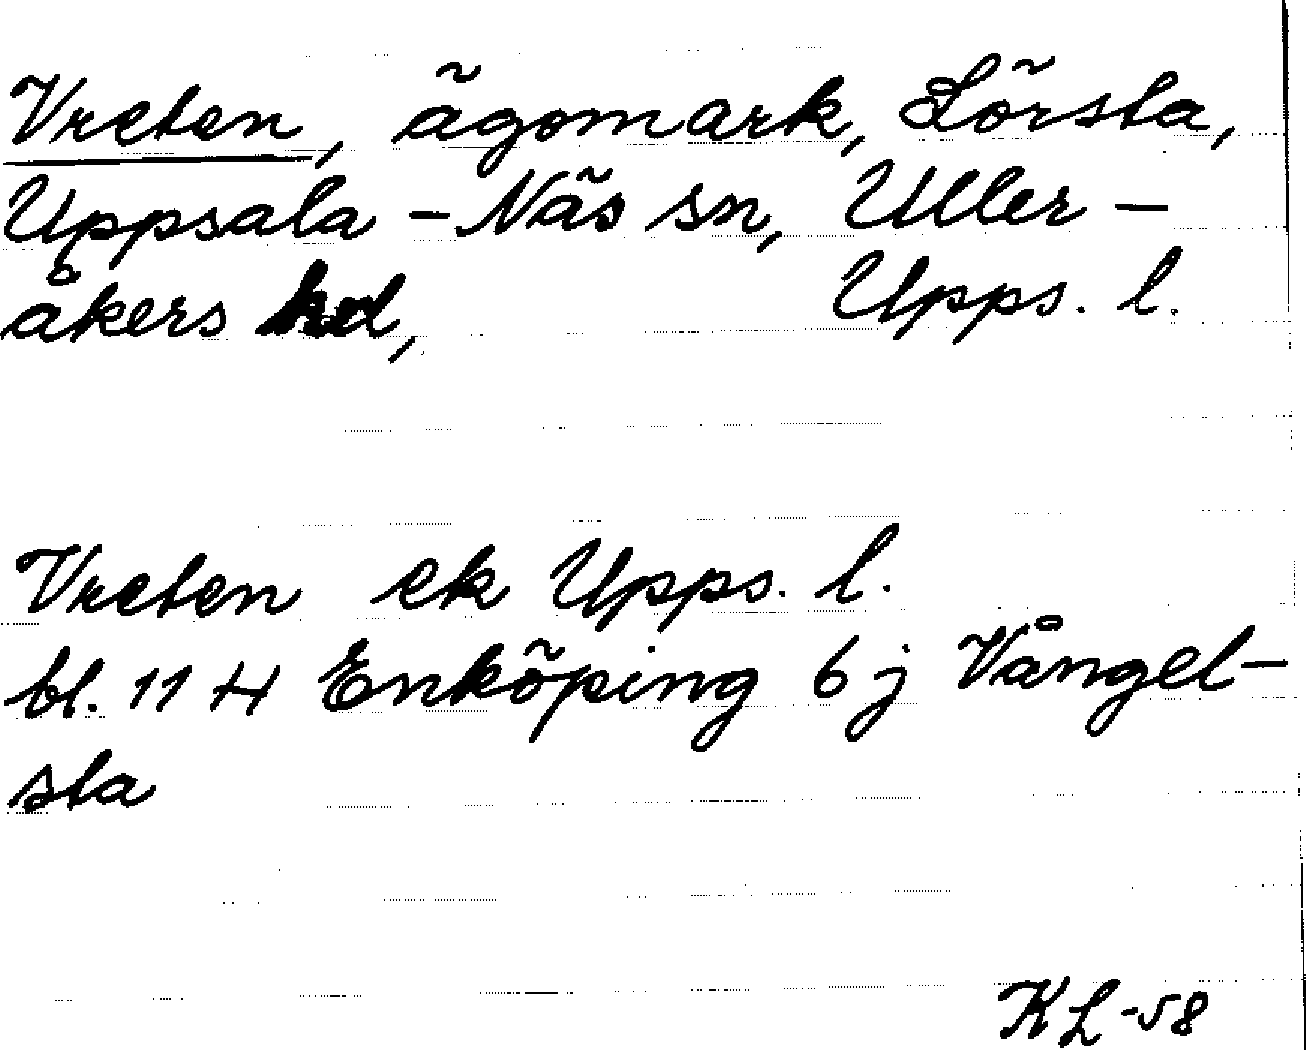 Vreten, ägomark, Lörsta,
Uppsala - Näs sn, Uller -
åkers hd, Upps. l.
Vreten ek Upps. l.
bl. 11 H Enköping 6 j Vångel-
sta
KL-58